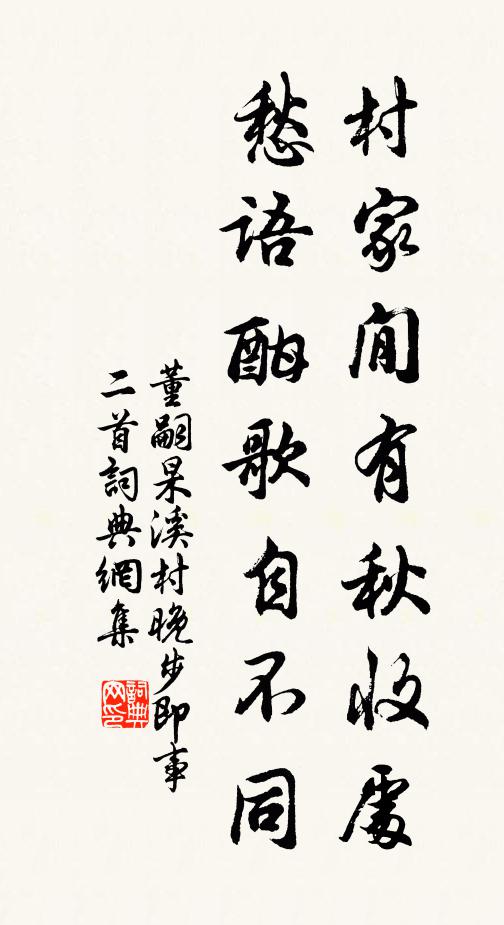 村家間有秋收處
愁語酣歌自不同
董嗣杲溪村晚步即事
二首詞典網集
詞典
网印